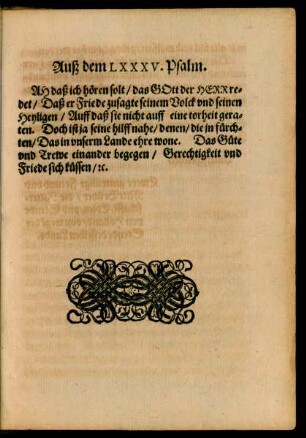 Auß dem LXXXV. Psalm.
AH daß ich hören solt / das GOtt der HERR re-
det / Daß er Friede zusagte seinem Volck vnd seinen
Heyligen / Auff daß sie nicht auff eine torheit gera-
ten. Doch ist ja seine hilff nahe / denen / die jn fürch-
ten / Das in vnserm Lande ehre wone. Das Güte
vnd Trewe einander begegen / Gerechtigkeit vnd
Friede sich küssen / ꝛc.